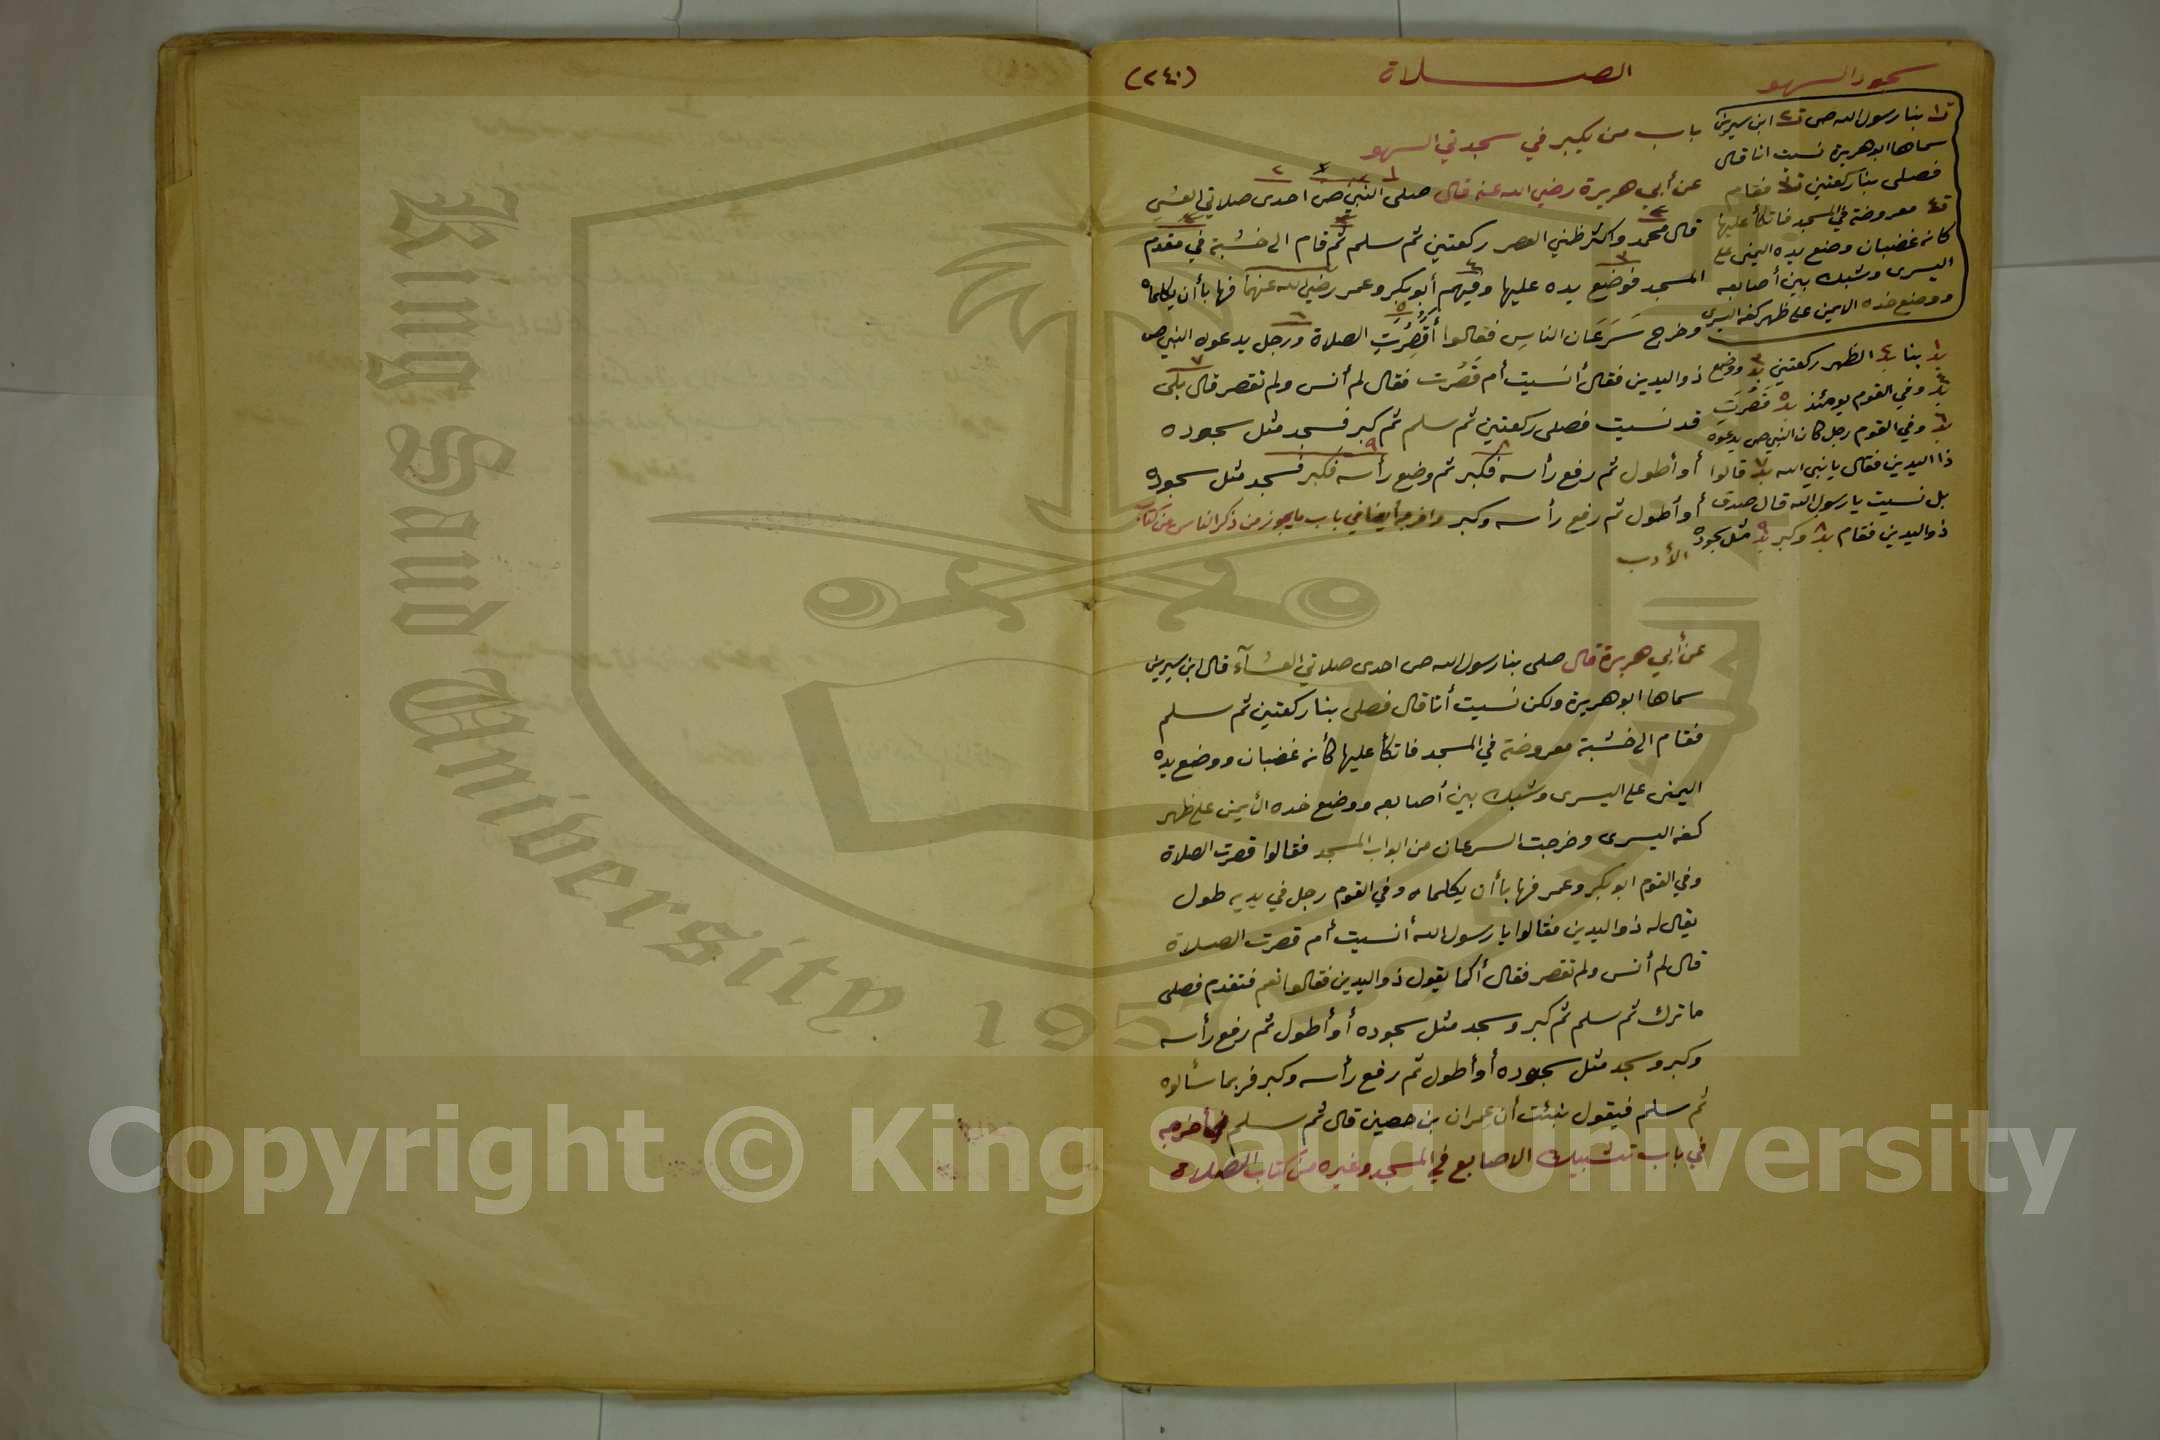 سجود السهو
الصلاة
(٢٤٠)
باب من يكبر في سجدتي السهو
عن أبي هريرة رضي الله عنه قال صلى النبي ص احدى صلاتي العشي
قال محمد واكثر ظني العصر ركعتين ثم سلم ثم قام الى خشبة في مقدم
المسجد فوضع يده عليها وفيهم أبو بكر وعمر رضي الله عنهما فهابا أن يكلماه
وخرج سَرَعَان الناسِ فقالوا أَقَصُرَتِ الصلاة ورجل يدعوه النبي ص
ذو اليدين فقال أنسيت أم قَصُرت فقال لم أنس ولم تقصر قال بلى
قد نسيت فصلى ركعتين ثم سلم ثم كبر فسجد مثل سجوده
أو أطول ثم رفع رأسه فكبر ثم وضع رأسه فكبر فسجد مثل سجوده
أو أطول ثم رفع رأسه وكبر وافرجه أيضا في باب ما يجوز من ذكر الناس من كتاب
الأدب
ت١ بنا رسول الله ص ت٢ ابن سيرين
سماها ابو هريرة نسيت انا قال
فصلى بنا ركعتين ت٣ فقام
ت٤ معروضة في المسجد فاتكأ عليها
كانه غضبان وضع يده اليمنى على
اليسرى وشبك بين أصابعه
ووضع خده الايمن على ظهر كفه اليسرى
بنا الظهر ركعتين ووضع
وفي القوم يومئذ قَصُرَتِ
وفي القوم رجل كان النبي ص يدعوه
ذا اليدين فقال يا نبي الله قالوا
بل نسيت يا رسول الله قال صدق
ذو اليدين فقام وكبر مثل سجوده
عن أبي هريرة قال صلى بنا رسول الله ص احدى صلاتي العشآء قال ابن سيرين
سماها ابو هريرة ولكن نسيت أنا قال فصلى بنا ركعتين ثم سلم
فقام الى خشبة معروضة في المسجد فاتكأ عليها كأنه غضبان ووضع يده
اليمنى على اليسرى وشبك بين أصابعه ووضع خده الأيمن على ظهر
كفه اليسرى وخرجت السرعان من ابواب المسجد فقالوا قصرت الصلاة
وفي القوم ابو بكر وعمر فهابا أن يكلماه وفي القوم رجل في يديه طول
يقال له ذو اليدين فقالوا يا رسول الله أنسيت أم قصرت الصلاة
قال لم أنس ولم تقصر فقال أكما يقول ذو اليدين فقالوا نعم فتقدم فصلى
ما ترك ثم سلم ثم كبر وسجد مثل سجوده أو أطول ثم رفع رأسه
وكبر وسجد مثل سجوده أو أطول ثم رفع رأسه وكبر فربما سألوه
ثم سلم فيقول نبئت أن عمران بن حصين قال ثم سلم أخرجه
في باب تشبيك الاصابع في المسجد وغيره من كتاب الصلاة
King Saud University 1957
Copyright © King Saud University